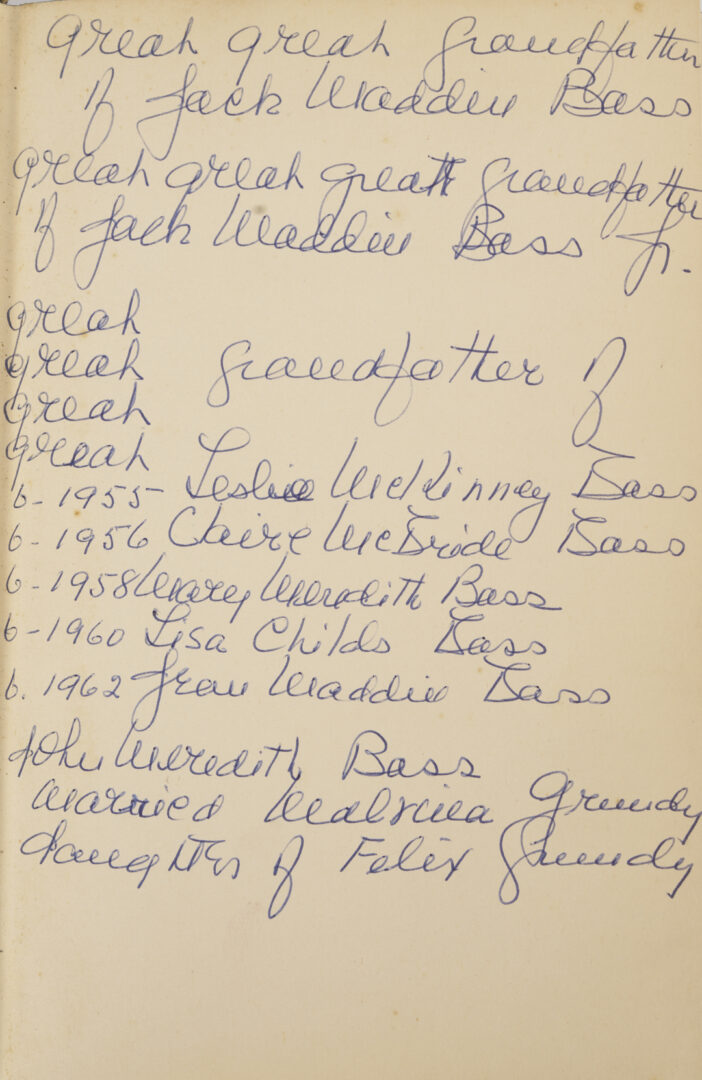 great great Grandfather
of Jack Maddin Bass
great great great Grandfather
of Jack Maddin Bass Jr.
great
great Grandfather of
great
great
b- 1955- Leslie McKinney Bass
b- 1956 Claire McBride Bass
b-1958 Mary Meredith Bass
b-1960 Lisa Childs Bass
b. 1962 Fran Maddin Bass
John Meredith Bass
married Malvina Grundy
daughter of Felix Grundy